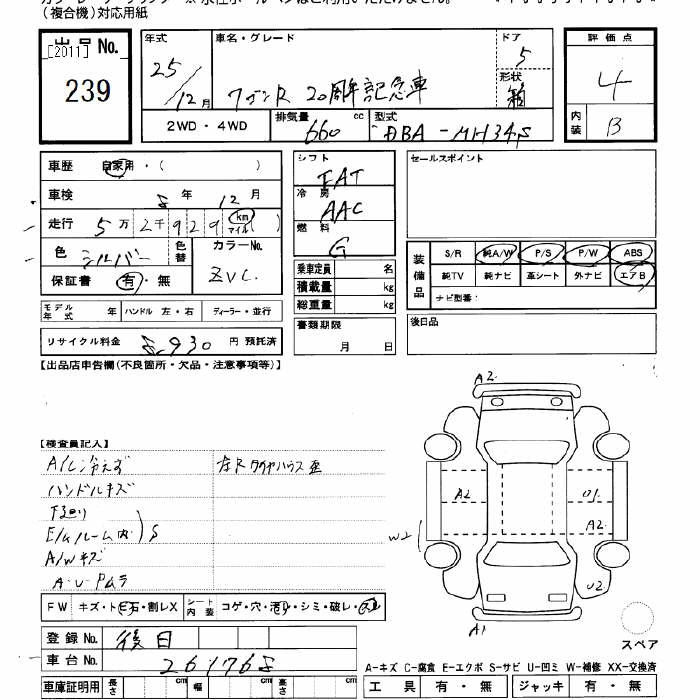 (複合機)対応用紙
出品No.
[2011]
239
年式
25/12月
車名・グレード
ワゴンR 20周年記念車
ドア
5
形状
箱
評価点
4
内装
B
2WD・4WD
排気量
660 cc
型式
DBA-MH34S
車歴 自家用・( )
車検 年 12月
走行 5万2千929 km マイル( )
色 シルバー
色替
カラーNo.
Z2VC.
保証書 有・無
モデル年式 年 ハンドル 左・右 ディーラー・並行
リサイクル料金 円 預託済
シフト
FAT
冷房
AAC
燃料
G
乗車定員 名
積載量 kg
総重量 kg
書類期限
月 日
セールスポイント
装備品
S/R 純A/W P/S P/W ABS
純TV 純ナビ 革シート 外ナビ エアB
ナビ型番:
後日品
【出品店申告欄(不良箇所・欠品・注意事項等)】
【検査員記入】
A/C冷えず 左Rタイヤハウス歪
ハンドルキズ
下廻り
E/ルーム内 S
A/Wキズ
A・U・Pムラ
A2
A2
U1
A2
W2
U2
A1
FW キズ・トビ石・割レX シート内装 コゲ・穴・汚レ・シミ・破レ・スレ
登録No. 後日
車台No. 261768
車庫証明用 長さ cm 幅 cm 高さ cm
スペア
A-キズ C-腐食 E-エクボ S-サビ U-凹ミ W-補修 XX-交換済
工具 有・無 ジャッキ 有・無